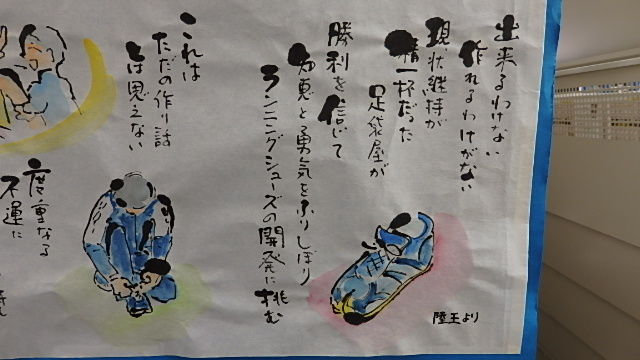 出来るわけない
作れるわけがない
現状維持が
精一杯だった
足袋屋が
勝利を信じて
知恵と勇気をふりしぼり
ランニングシューズの開発に挑む
陸王より
これは
ただの作り話
とは思えない
度重なる
不運に